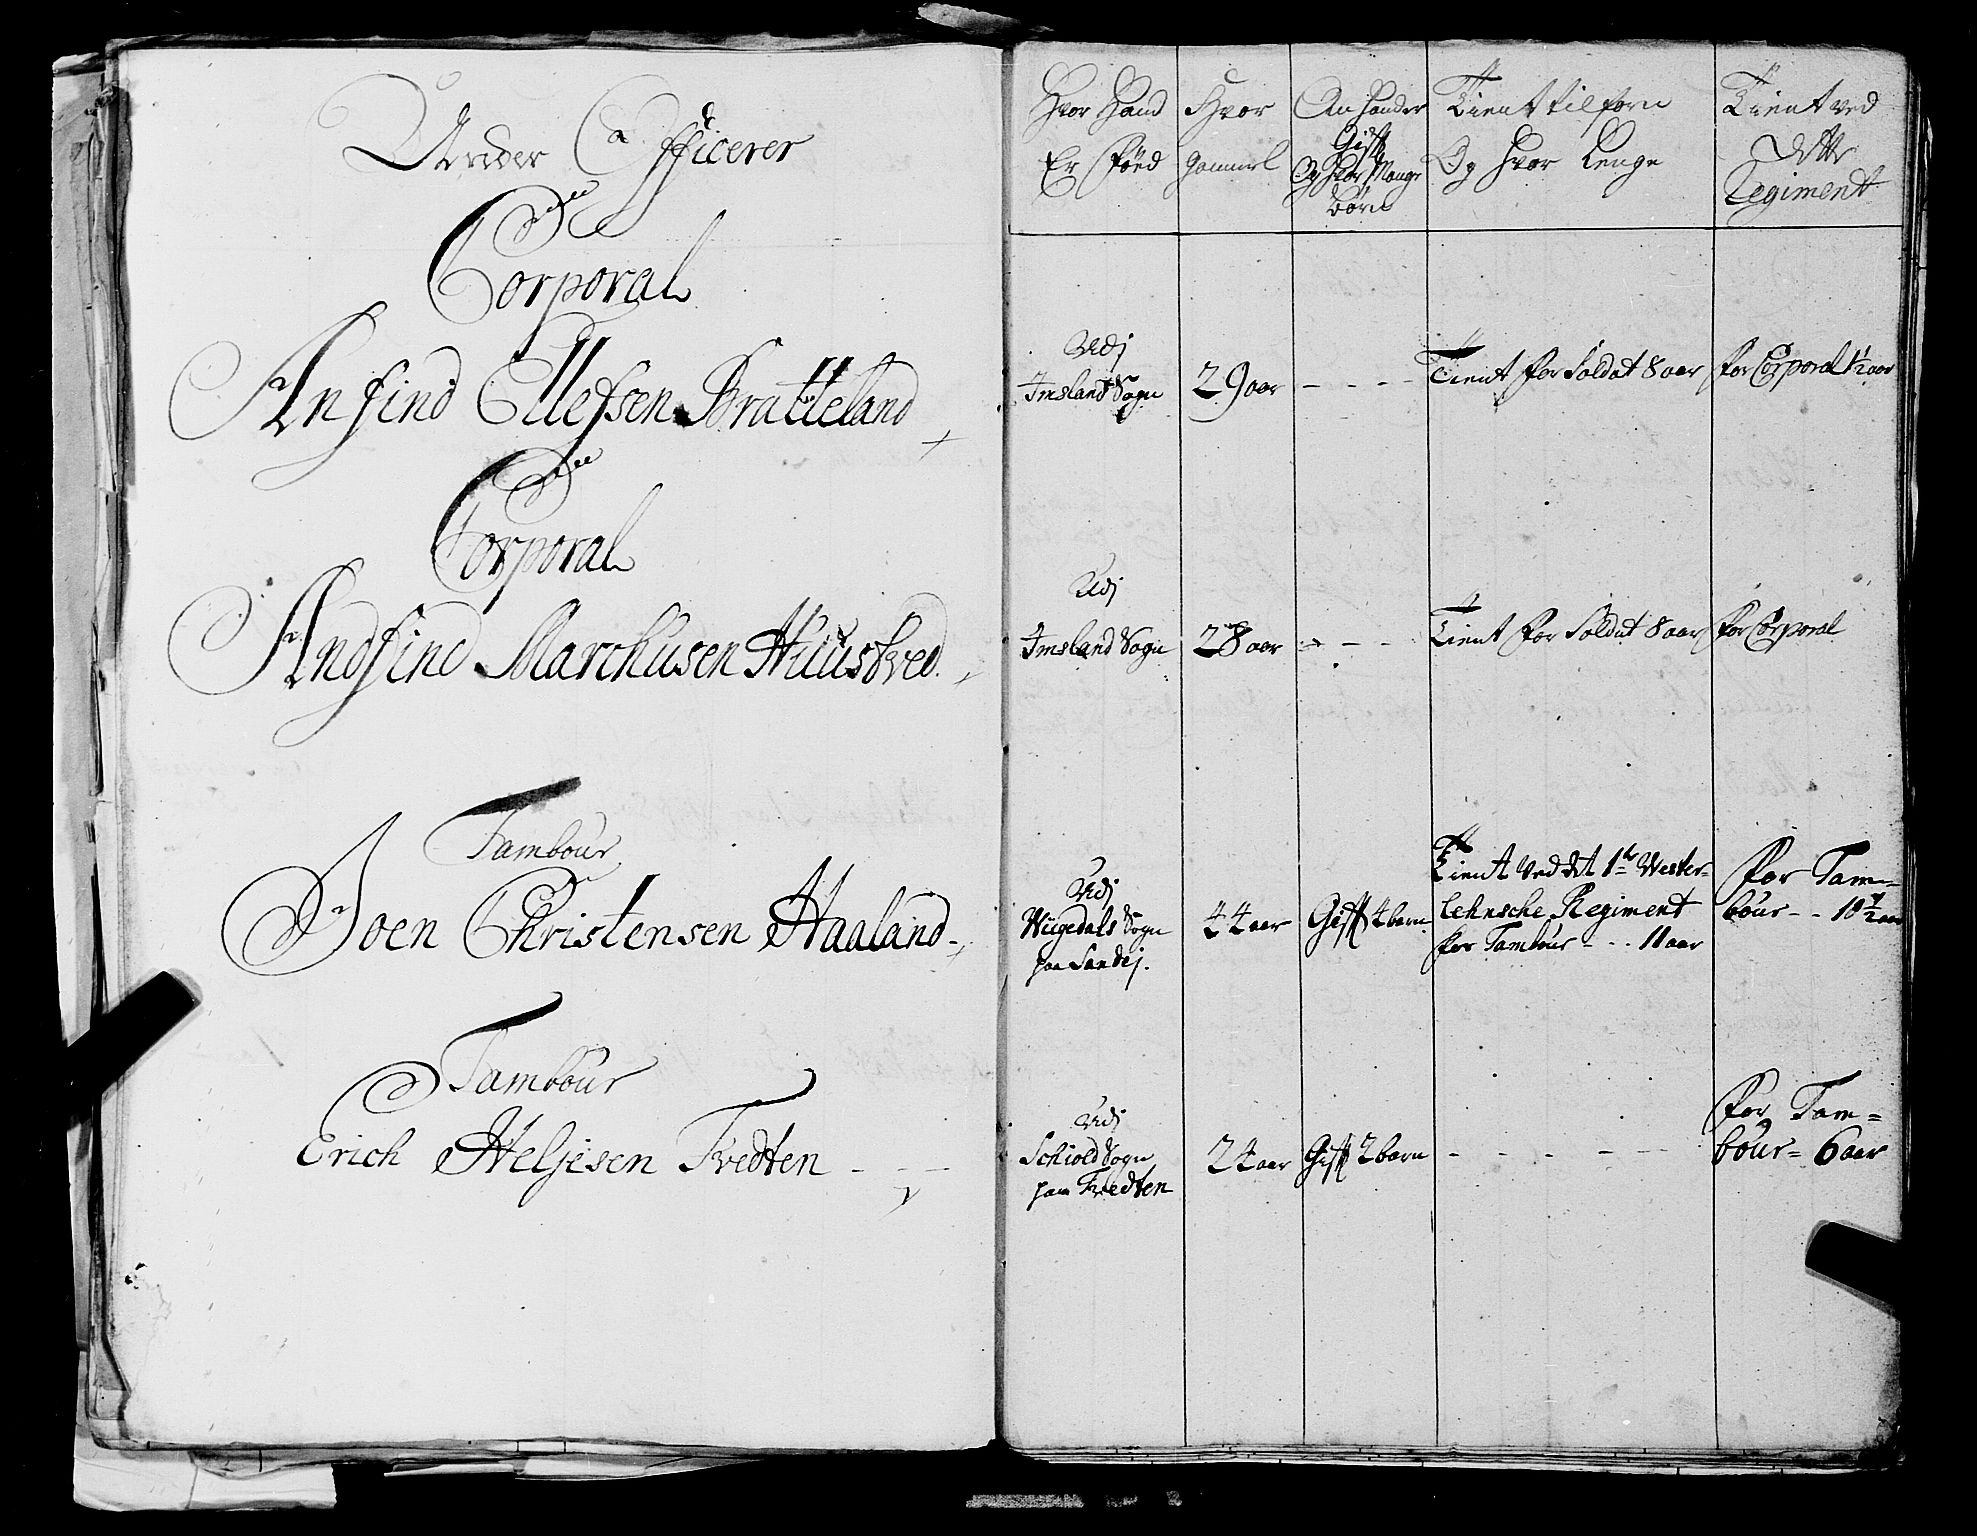 Under Officerer
Corporal
Anfind Ellefsen Bratteland
Corporal
Andfind Marchusen Huustved
Tambour
Joen Christensen Haaland
Tambour
Erich Heljesen Tvedten - - -
Hvor Hand
Er Föed
Hvor
Gammel
An Hander
Gift
Og Hvor Mange
børn
Tient tilforn
Og hvor Lenge
Tient ved
Dette
Regiment
Udj
Imsland Sogn
29 aar
- - - -
Tient for Soldat 8 aar
for Corporal 1½ aar
Udj
Imsland Sogn
28 aar
- - -
Tient for Soldat 8 aar
for Corporal
Udj
Wiigedals Sogn
paa Sandej.
44 aar
Gift 4 barn
Tient ved det 1te Wester-
lehnsche Regiment
for Tambour - - - 11 aar
for Tam=
bour - - 10½ aar
Udj
Schiold Sogn
paa Tvedten
24 aar
Gift 2 barn
- - - - - -
for Tam=
bour = 6 aar